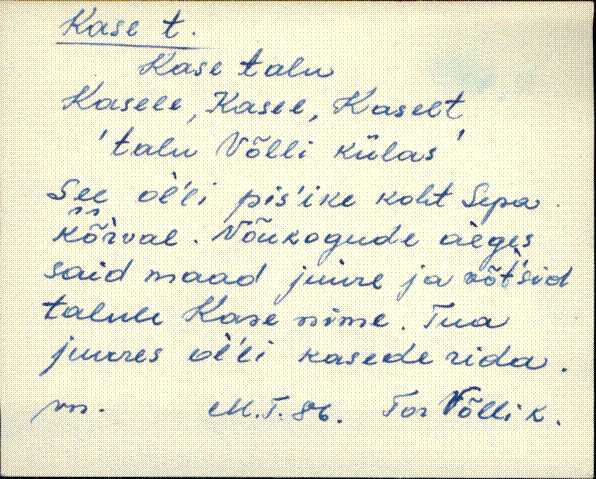 Kase t.
Kase talu
Kasele, Kasel, Kaselt
'talu Võlli külas'
See òl'li pis'ike koht Sepa
kõrval. Nõukogude aeges
said maad juure ja võt'sid
talule Kase nime. Tua
juures òl'li kasede rida.
vn. M.T. 86. Tor Võlli k.